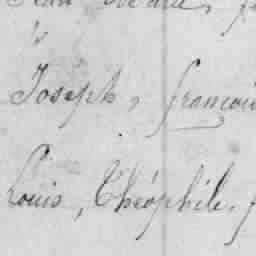 Joseph, françois
Louis, Théophile.